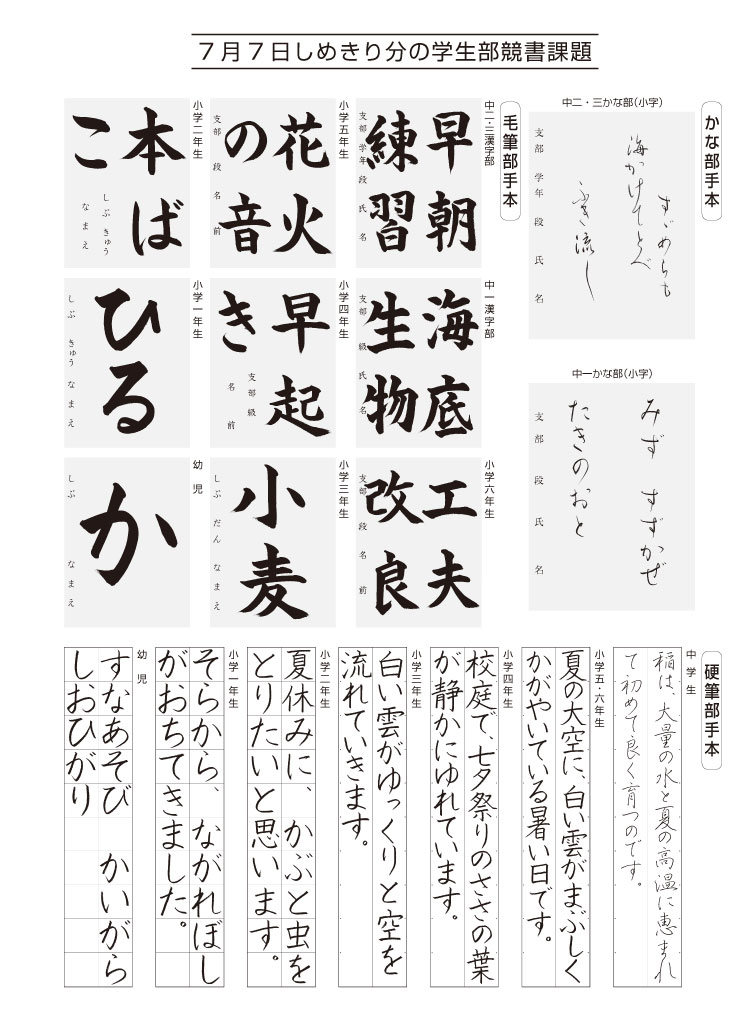 7月7日しめきり分の学生部競書課題
かな部手本
中二・三かな部(小字)
すゞめらも
海かけてとべ
ふき流し
支部 学年 段 氏名
中一かな部(小字)
みず すずかぜ
たきのおと
支部 段 氏名
毛筆部手本
中二・三漢字部
早朝
練習
支部 学年 段 氏名
小学五年生
花火
の音
支部 段 名前
小学二年生
本ば
こ
しぶ きゅう
なまえ
中一漢字部
海底
生物
支部 級 氏名
小学四年生
早起
き
支部 級
名前
小学一年生
ひる
しぶ きゅう なまえ
小学六年生
工夫
改良
支部 段 名前
小学三年生
小麦
しぶ だん なまえ
幼児
か
しぶ なまえ
硬筆部手本
中学生
稲は、大量の水と夏の高温に恵まれ
て初めて良く育つのです。
小学五・六年生
夏の大空に、白い雲がまぶしく
かがやいている暑い日です。
小学四年生
校庭で、七夕祭りのささの葉
が静かにゆれています。
小学三年生
白い雲がゆっくりと空を
流れていきます。
小学二年生
夏休みに、かぶと虫を
とりたいと思います。
小学一年生
そらから、ながれぼし
がおちてきました。
幼児
すなあそび かいがら
しおひがり